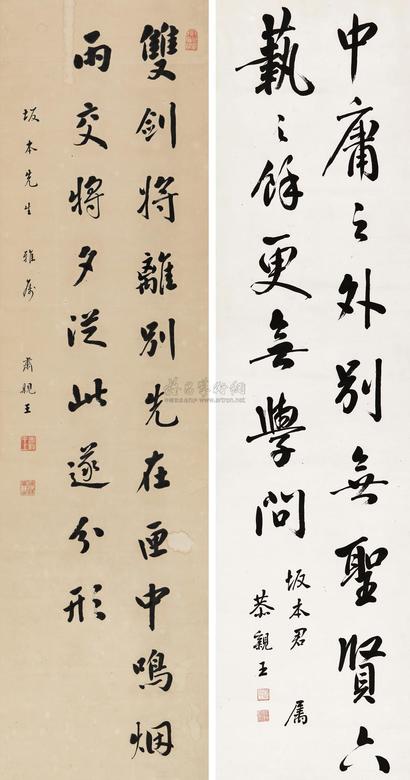 中庸之外別無聖賢六
藝之餘更無學問
坂本君屬
恭親王
雙劍將離別先在匣中鳴烟
雨交將夕從此遂分形
坂本先生 雅屬 肅親王
www.artron.net